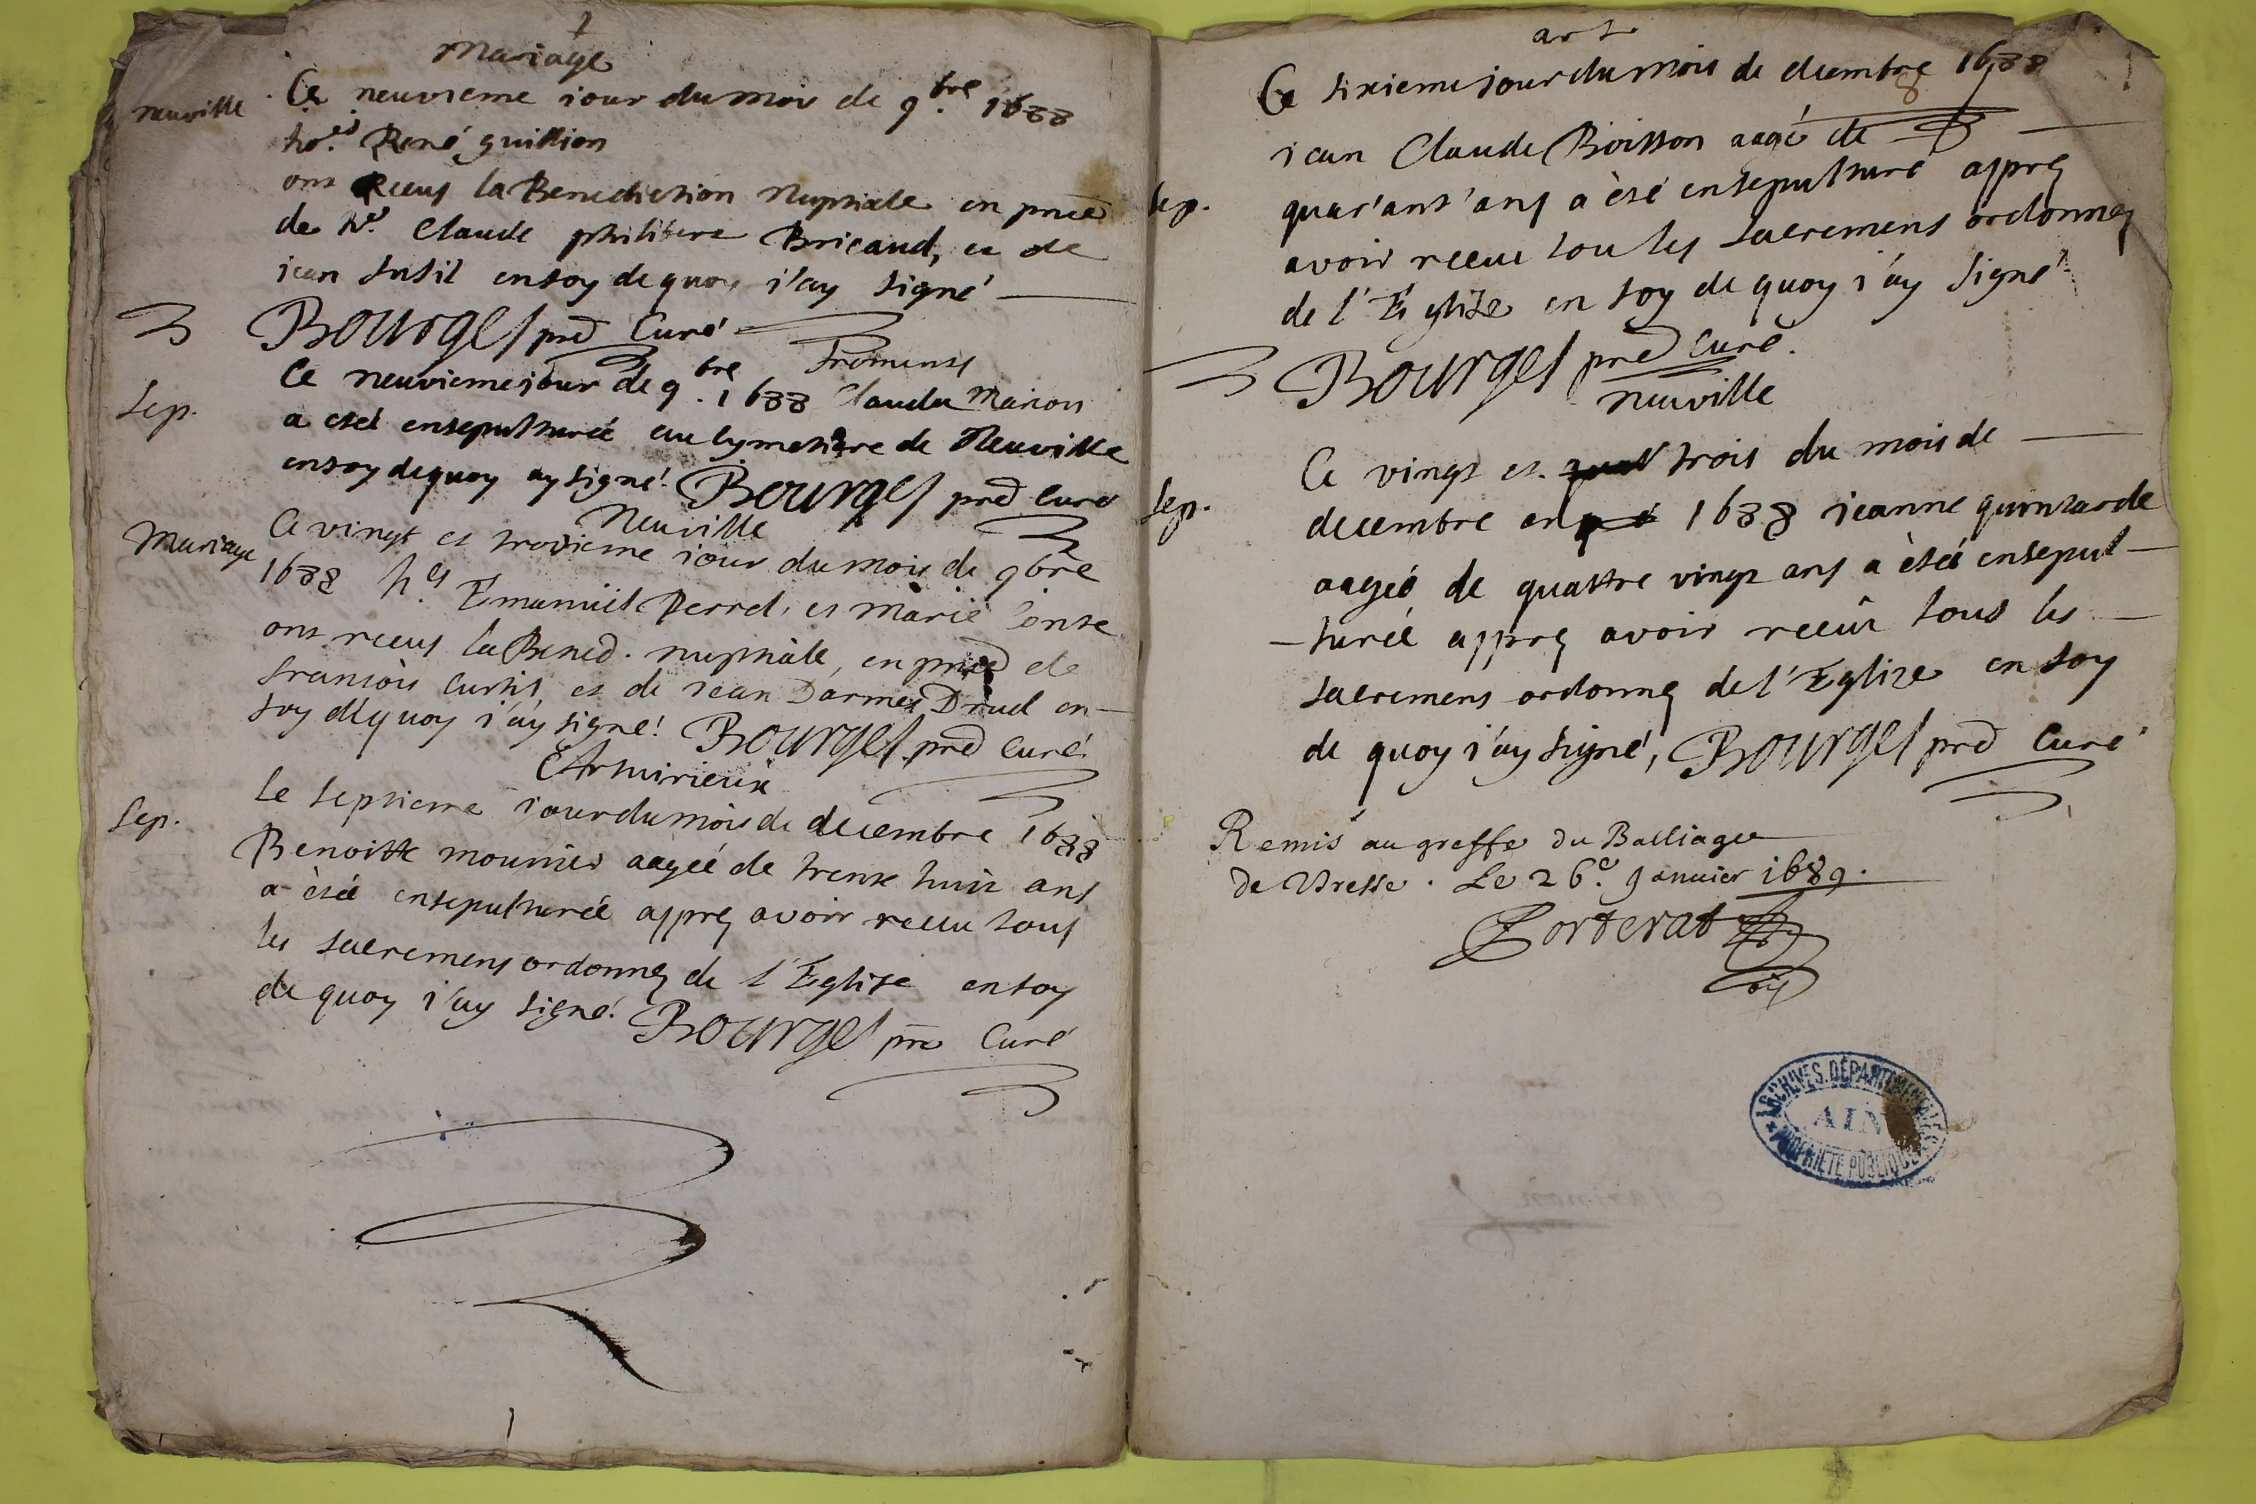 Mariage
neuville
Ce neuvieme iour du mois de 9.bre 1688
ho.es René guillion
ont Receus la Benediction Nuptiale en pnce
de h.e Claude philibert Bricaud, et de
iean futil en foy de quoy i'ay signé
Bourges pred Curé
froment
Sep.
Ce neuvieme iour de 9.bre 1688 Claudu Marion
a esté ensepulturée au Cymetiere de Neuville
en foy de quoy ay signé. Bourges pred Curé
Neuville
Mariage
Ce vingt et troisieme iour du mois de 9bre
1688 h.es Emanuel Perret, et Marie
ont receus la Bened. nuptiale, en pnce de
fransois Curtil et de iean Darmes Drud en
foy de quoy i'ay signé. Bourges pred Curé
Sep.
Le septieme iour du mois de decembre 1688
Benoitte mounier aagée de trente huit ans
a étée ensepulturée apprez avoir receu tous
les sacremens ordonnez de l'Eglise en foy
de quoy i'ay signé. Bourges pre Curé
art
Ce sixieme iour du mois de decembre 1688
iean Claude Boisson aagé de
Sep.
quar'ant'ans a été ensepulturé apprez
avoir receu tou les sacremens ordonnez
de l'Eglise en foy de quoy i'ay signé
Bourges pred Curé.
neuville
Ce vingt et trois du mois de
Sep.
decembre an 1688 ieanne quintarde
aagée de quattre vingt ans a étée ensepul-
-turée apprez avoir receu tous les
sacremens ordonnez de l'Eglize en foy
de quoy i'ay signé, Bourges pred Curé
Remis au greffe du Balliage
de Bresse. Le 26.e Janvier 1689.
ARCHIVES DÉPARTEMENTALES
AIN
PROPRIÉTÉ PUBLIQUE